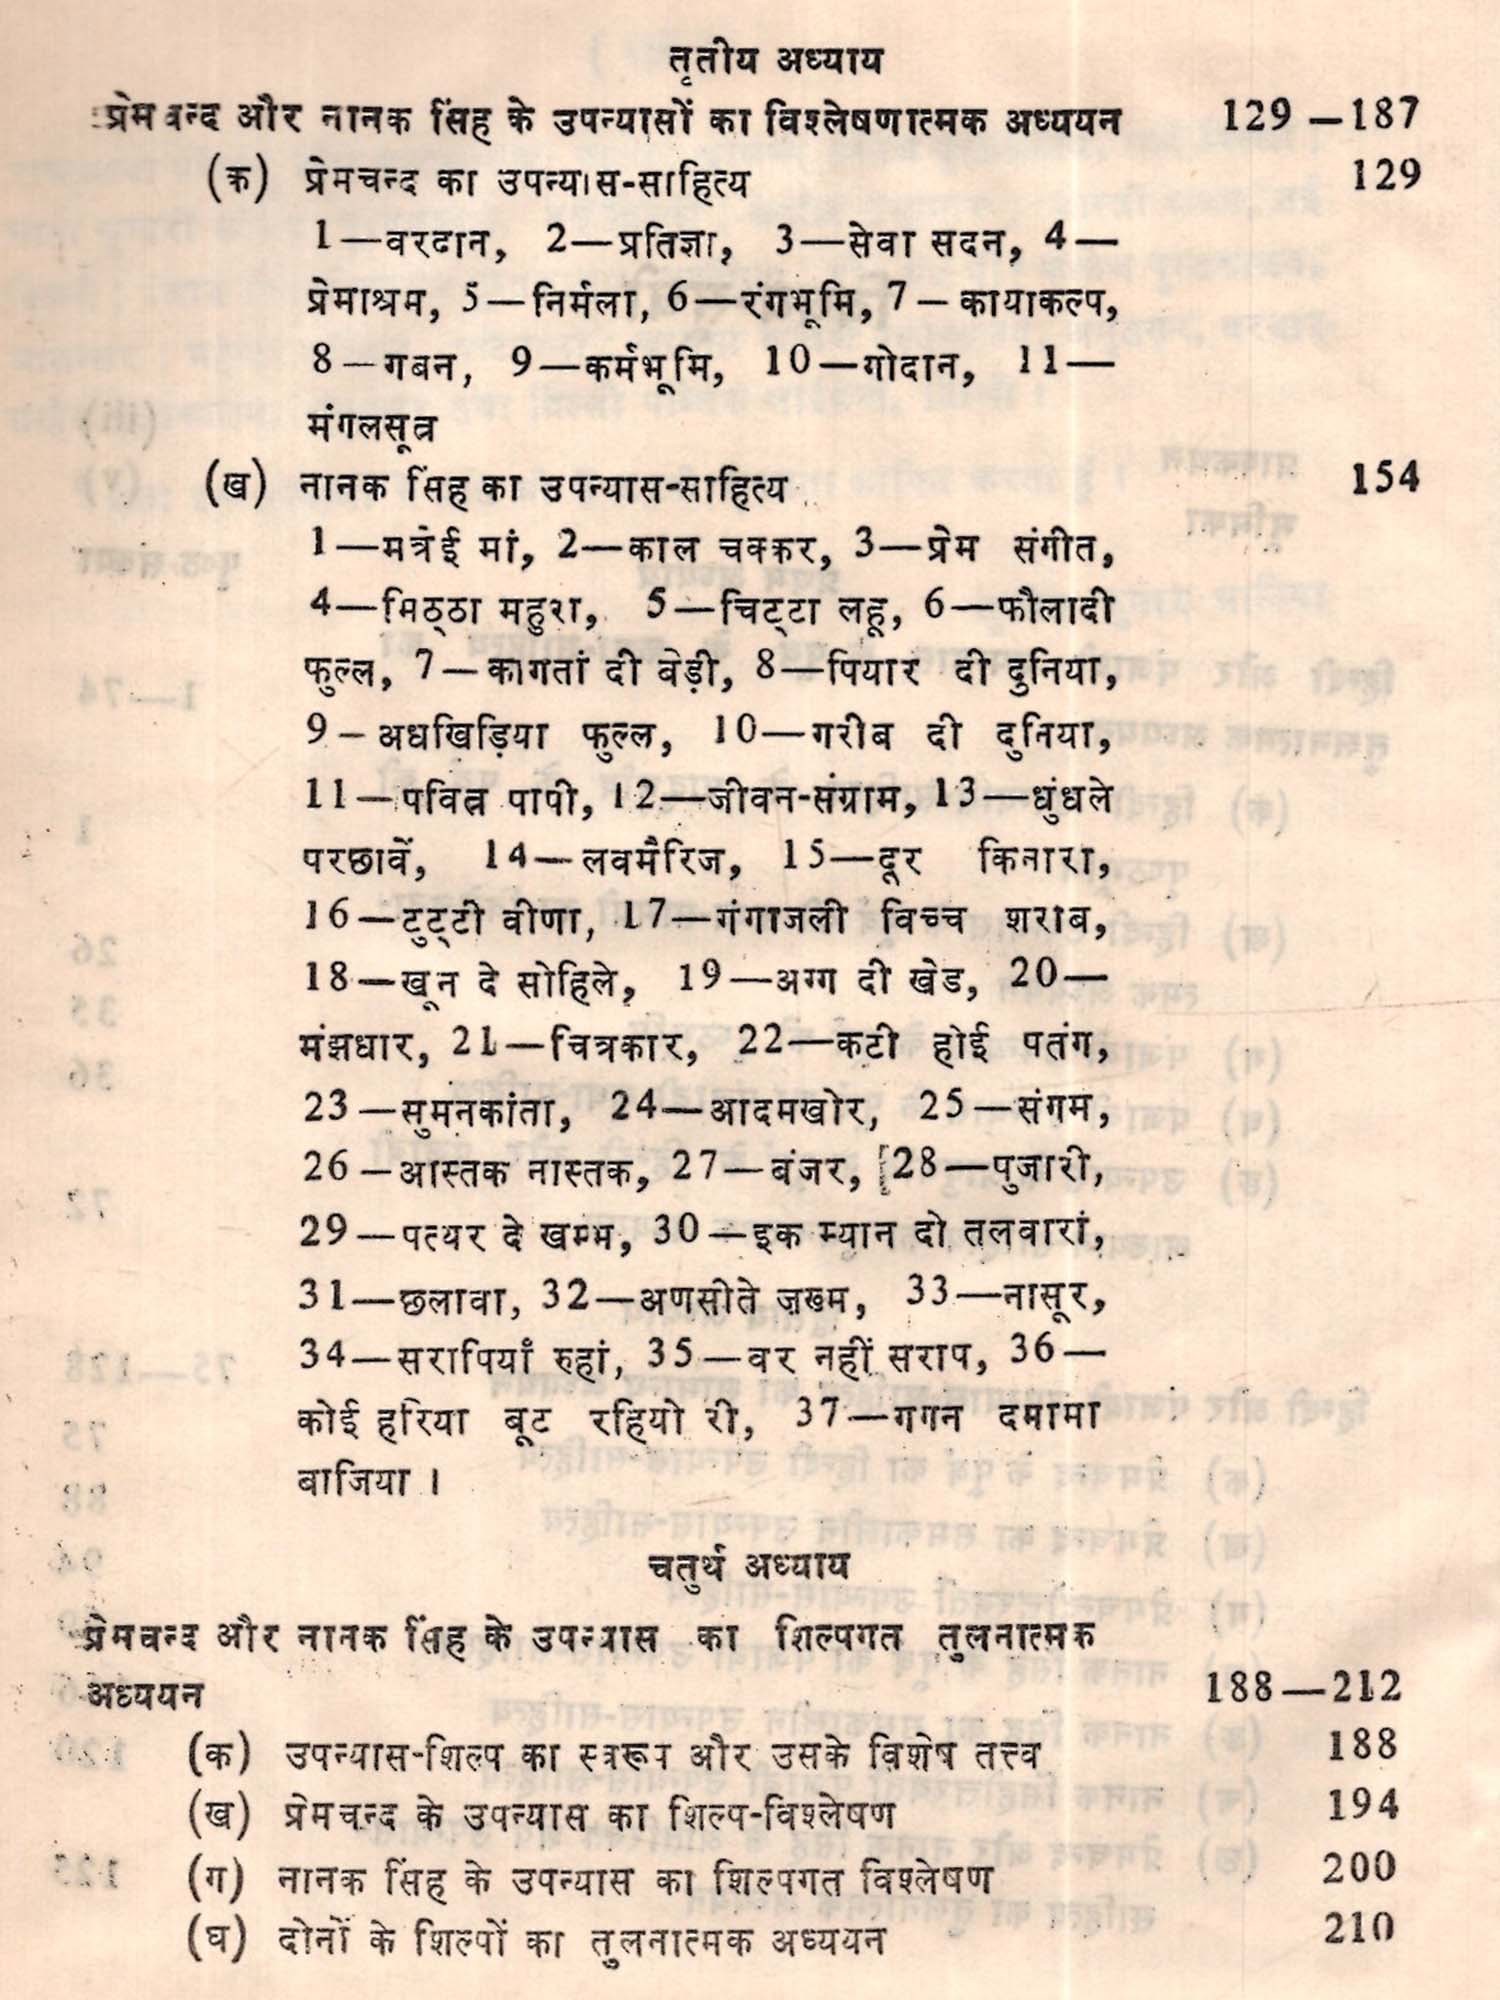 तृतीय अध्याय
प्रेमचन्द और नानक सिंह के उपन्यासों का विश्लेषणात्मक अध्ययन 129—187
(क) प्रेमचन्द का उपन्यास-साहित्य 129
1—वरदान, 2—प्रतिज्ञा, 3—सेवा सदन, 4—
प्रेमाश्रम, 5—निर्मला, 6—रंगभूमि, 7—कायाकल्प,
8—गबन, 9—कर्मभूमि, 10—गोदान, 11—
मंगलसूत्र
(ख) नानक सिंह का उपन्यास-साहित्य 154
1—मत्रेई मां, 2—काल चक्कर, 3—प्रेम संगीत,
4—मिठ्ठा महुरा, 5—चिट्टा लहू, 6—फौलादी
फुल्ल, 7—कागतां दी बेड़ी, 8—पियार दी दुनिया,
9—अधखिड़िया फुल्ल, 10—गरीब दी दुनिया,
11—पवित्र पापी, 12—जीवन-संग्राम, 13—धुंधले
परछावें, 14—लवमैरिज, 15—दूर किनारा,
16—टुट्टी वीणा, 17—गंगाजली विच्च शराब,
18—खून दे सोहिले, 19—अग्ग दी खेड, 20—
मंझधार, 21—चित्रकार, 22—कटी होई पतंग,
23—सुमनकांता, 24—आदमखोर, 25—संगम,
26—आस्तक नास्तक, 27—बंजर, [28—पुजारी,
29—पत्थर दे खम्भ, 30—इक म्यान दो तलवारां,
31—छलावा, 32—अणसीते ज़ख्म, 33—नासूर,
34—सरापियाँ रुहां, 35—वर नहीं सराप, 36—
कोई हरिया बूट रहियो री, 37—गगन दमामा
वाजिया ।
चतुर्थ अध्याय
प्रेमचन्द और नानक सिंह के उपन्यास का शिल्पगत तुलनात्मक
अध्ययन 188—212
(क) उपन्यास-शिल्प का स्वरूप और उसके विशेष तत्त्व 188
(ख) प्रेमचन्द के उपन्यास का शिल्प-विश्लेषण 194
(ग) नानक सिंह के उपन्यास का शिल्पगत विश्लेषण 200
(घ) दोनों के शिल्पों का तुलनात्मक अध्ययन 210